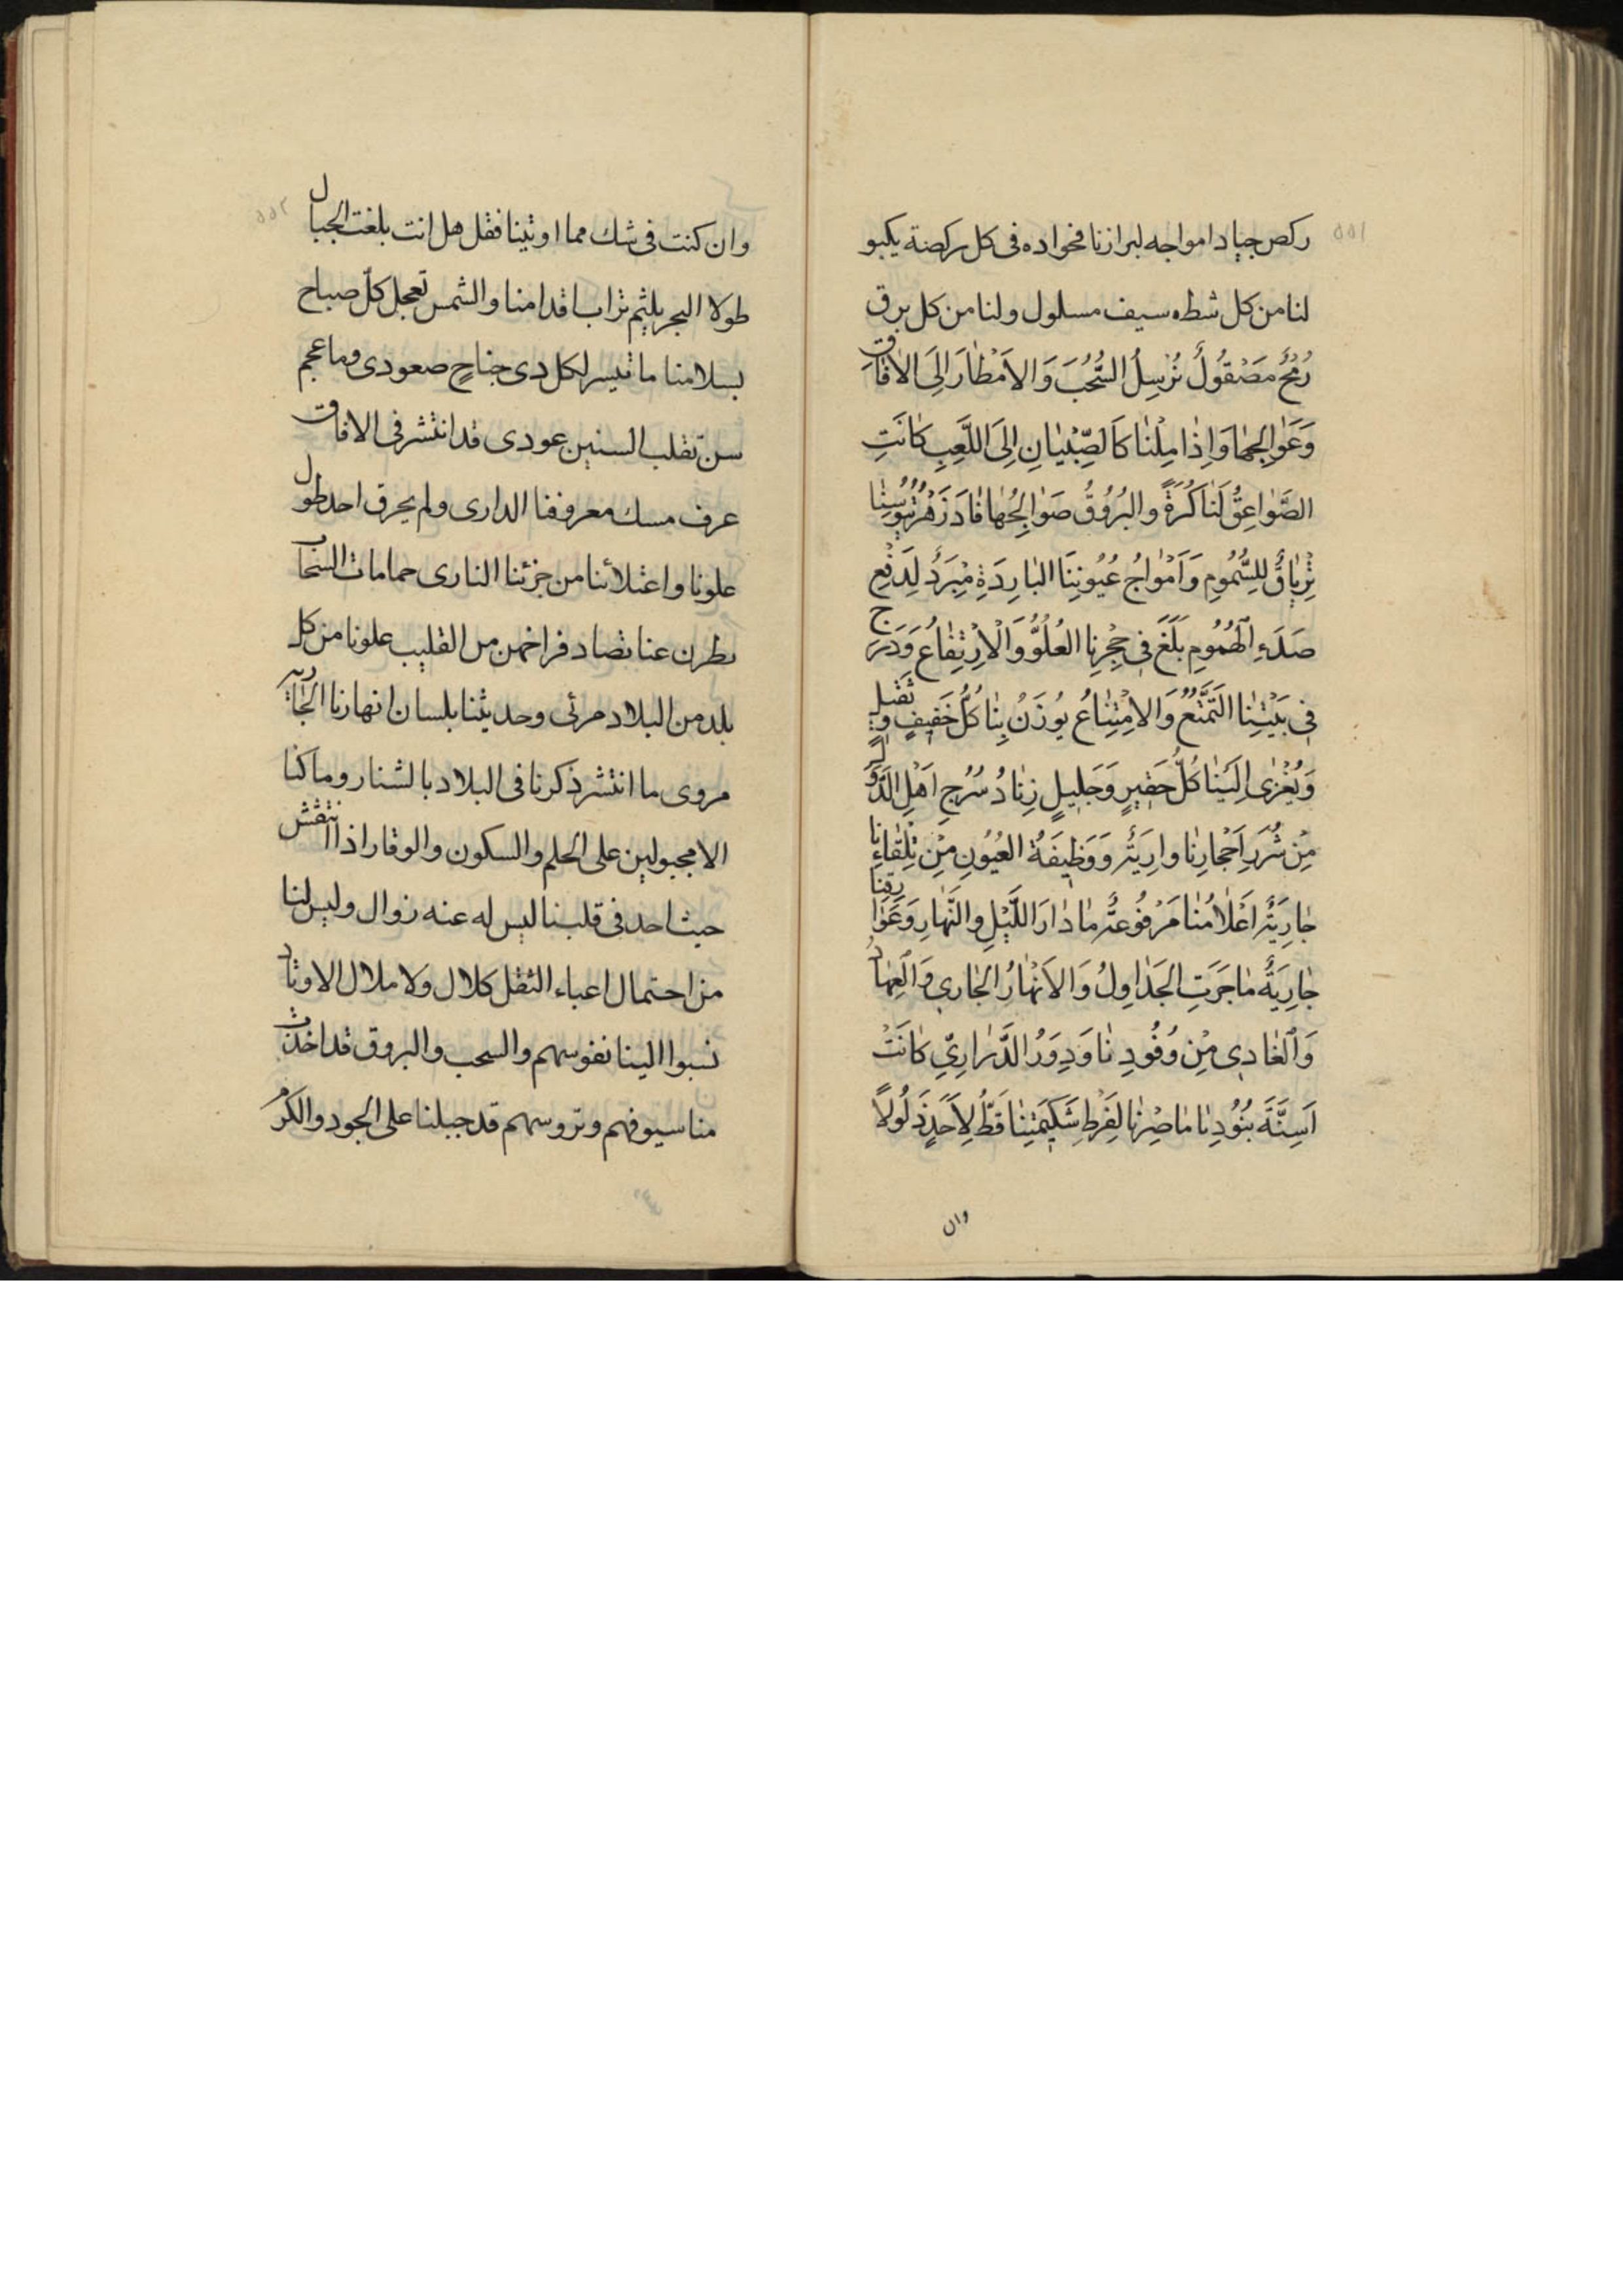 ٥٥١
ركض جياد امواجه لبرازنا فجواده فى كل ركضة يكبو
لنا من كل شطه سيف مسلول ولنا من كل برق
رُمْحٌ مَصْقُولٌ نُرْسِلُ السُّحُبَ وَالاَمْطٰارَ اِلَى الاٰفٰاقِ
وَعَوٰالِجهٰا وَاِذٰا مِلْنٰا كَالصِّبْيٰانِ اِلَى اللَّعِبِ كٰانَتِ
الصَّوٰاعِقُ لَنٰا كُرَةً والبُرُوقُ صَوٰالِجُهٰا فٰادَزَهْرُ تُيُوسِنٰا
تِرْيٰاقٌ لِلسُّمُومِ وَاَمْوٰاجُ عُيُونِنَا البٰارِدَةِ مِبْرَدٌ لِدَفْعِ
صَدَءِ الْهُمُومِ بَلَغَ فى حِجْرِنٰا العُلُوُّ وَالْاِرْتِفٰاعُ وَدَرَجَ
فى بَيْتِنٰا التَّمَنُّعُ وَالامْتِنٰاعُ يُوزَنُ بِنٰا كُلُّ خَفيفٍ وثَقيلٍ
وَيُعْزٰى اِلَيْنٰا كُلُّ حَقيرٍ وَجَليلٍ زِنٰادُ سُرُجِ اَهْلِ الدُّوَلِ
مِنْ شُرَرِ اَحْجٰارِنٰا وارِيَةٌ وَوَظيفَةُ العُيُونِ مِنْ تِلْقٰاءِنٰا
جٰارِيَةٌ اَعْلٰامُنٰا مَرْفُوعَةٌ مٰا دٰارَ اللَّيْلِ والنَّهٰارِ وَعَوٰارِفِنٰا
جٰارِيَةٌ مٰا جَرَتِ الجَدٰاوِلُ وَالاَنْهٰارُ الجٰارى وَالْعِهٰادُ
وَالْغٰادى مِنْ وُفُودِنٰا وَدِوَرُ الدَّرٰارِيِّ كٰانَتْ
اَسِنَّةَ بُنُودِنٰا مٰا صِرْنٰا لِفَرْطِ شَكيمَتِنٰا قَطُّ لِاَحَدٍ ذَلُولاً
وان
٥٥٢
وان كنت فى شك مما اوتينا فقل هل انت بلغت الجبال
طولا البحر يلثم تراب اقدامنا والشمس تعجل كلّ صباح
بسلامنا ما تيسر لكل ذى جناحٍ صعودى وما عجم
سنّ تقلب السنين عودى قد انتشر فى الافاق
عرف مسك معروفنا الدارى ولم يحرق احد طول
علونا واعتلائنا من جزئنا النارى حمامات السحاب
يطرن عنا تصاد فراخهن من القليب علونا من كل
بلد من البلاد مرئى وحديثنا بلسان انهارنا الجارية
مروى ما انتشر ذكرنا فى البلاد بالشنار وما كنا
الا مجبولين على الحلم والسكون والوقار اذا انتقش
حيث احد فى قلبنا ليس له عنه زوال وليس لنا
من احتمال اعباء الثقل كلال ولا ملال الاوتاد
نسبوا الينا نفوسهم والسحب والبروق قد اخذت
منا سيوفهم وتروسهم قد جبلنا على الجود والكرم